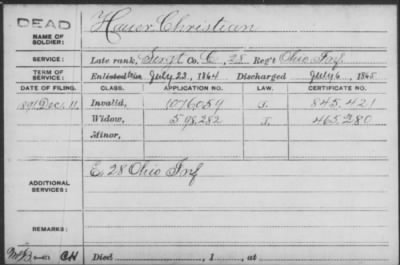 DEAD
NAME OF SOLDIER: Hauer, Christian
SERVICE: Late rank, Sergt Co. E, 28 Reg't Ohio Inf.
TERM OF SERVICE: Enlisted July 23, 1864 Discharged July 6, 1865
DATE OF FILING. CLASS. APPLICATION NO. LAW. CERTIFICATE NO.
1891 Dec. 11 Invalid, 1076059 J. 845.421
Widow, 598,282 J. 465,280
Minor,
ADDITIONAL SERVICES: E, 28 Ohio Inf
REMARKS:
Died , 1 , at